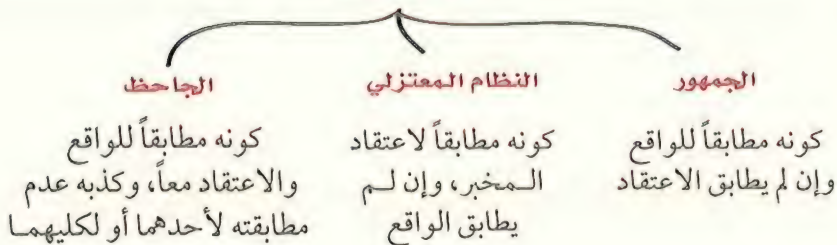 الجمهور
كونه مطابقاً للواقع
وإن لم يطابق الاعتقاد
النظام المعتزلي
كونه مطابقاً لاعتقاد
المخبر، وإن لم
يطابق الواقع
الجاحظ
كونه مطابقاً للواقع
والاعتقاد معاً، وكذبه عدم
مطابقته لأحدهما أو لكليهما